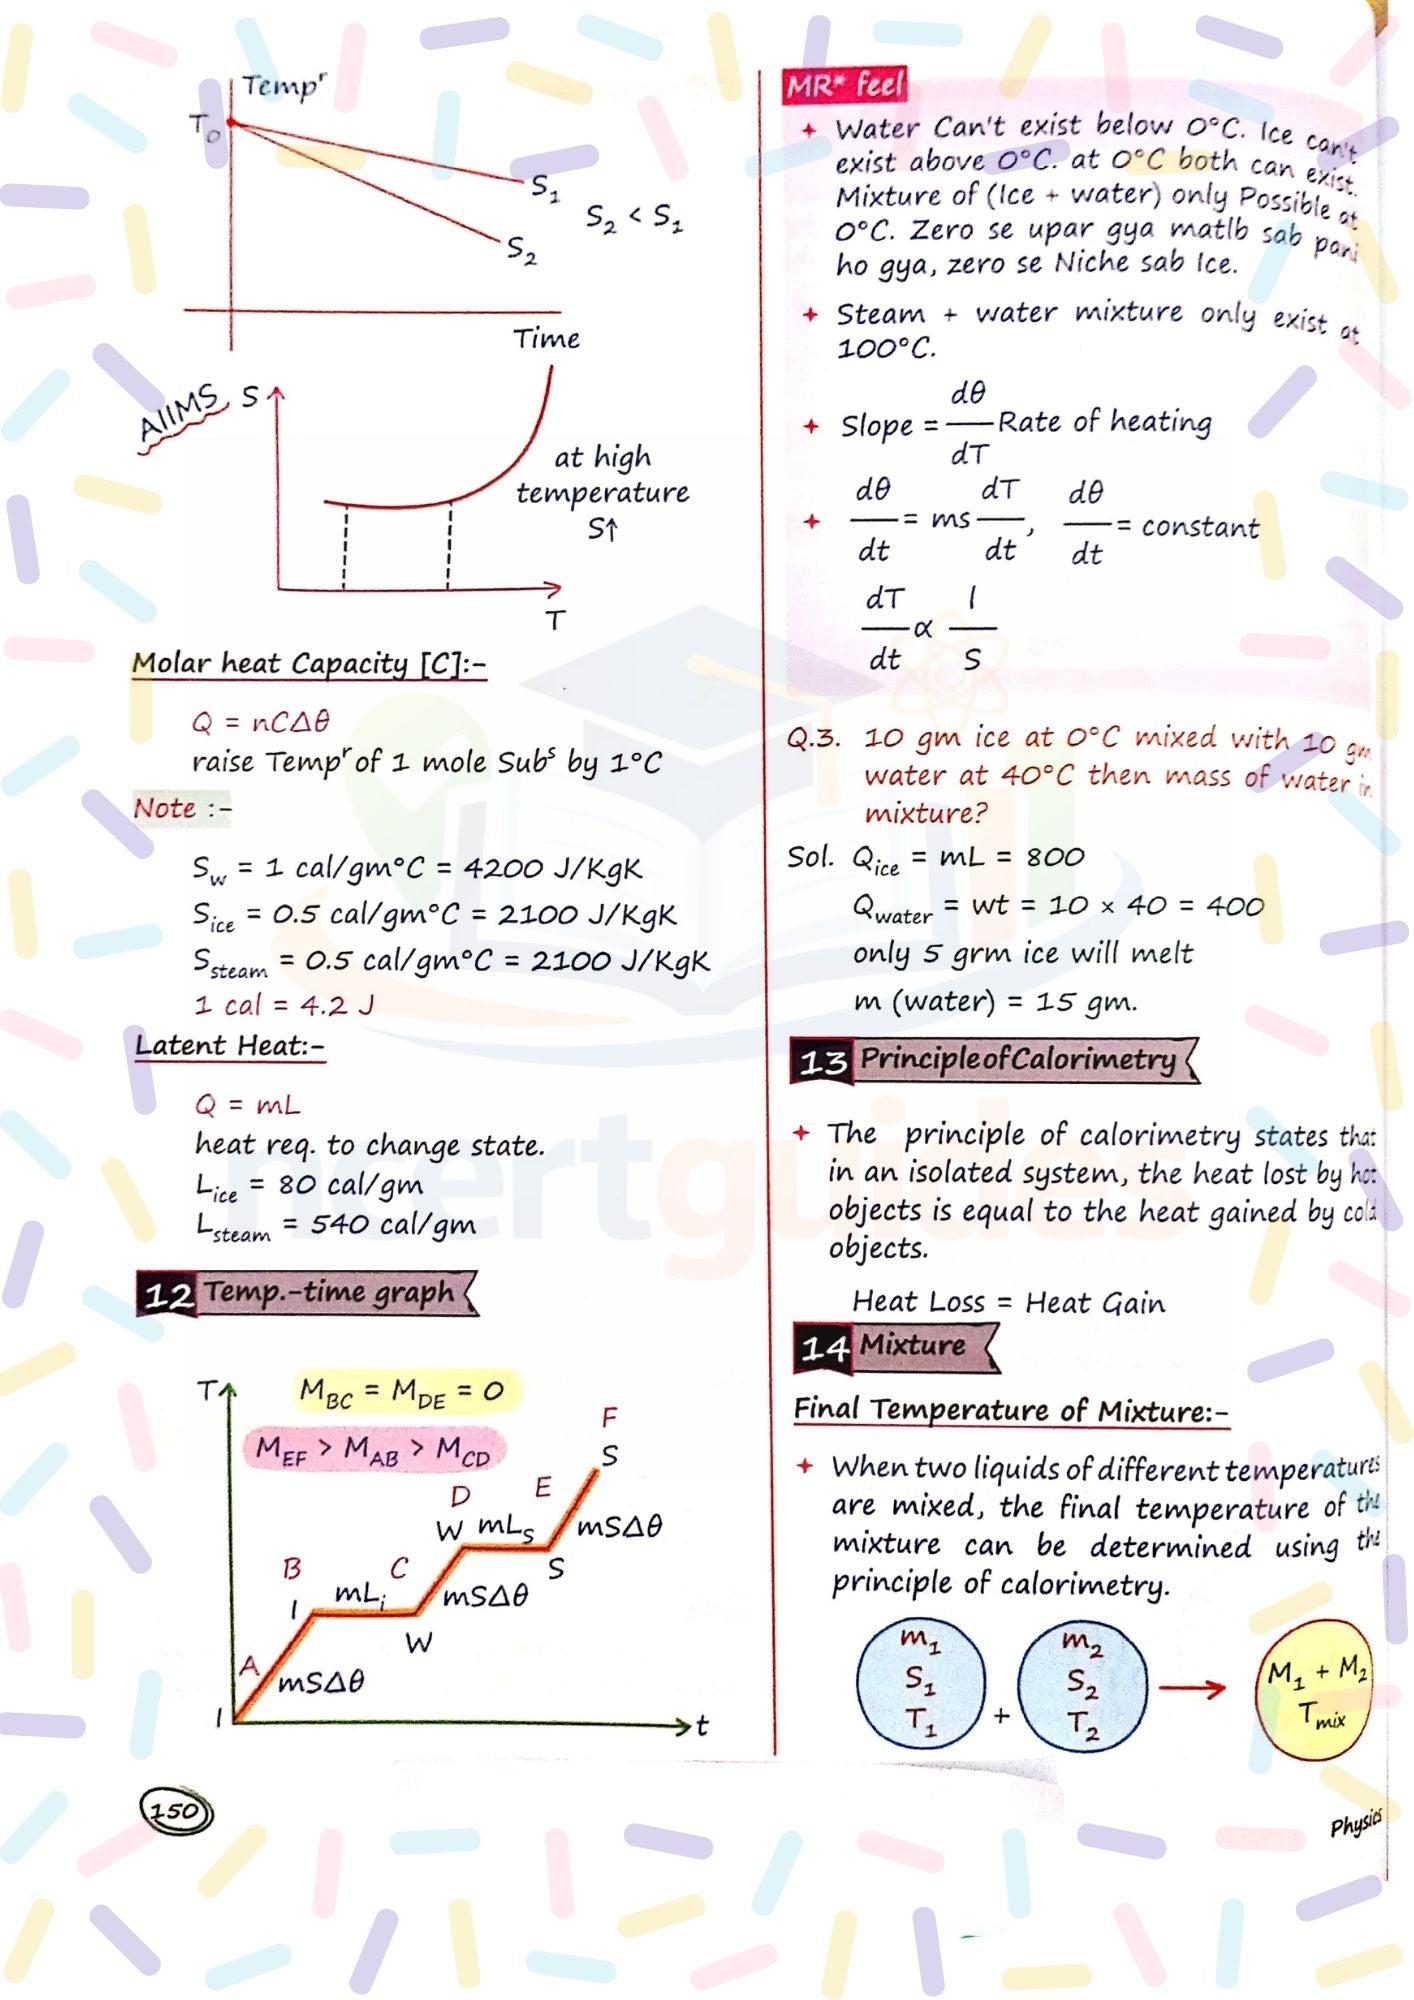 Tempʳ
T₀
S₁
S₂ < S₁
S₂
Time
AIIMS
S
at high
temperature
S↑
T
Molar heat Capacity [C]:-
Q = nCΔθ
raise Tempʳ of 1 mole Subˢ by 1°C
Note :-
S_w = 1 cal/gm°C = 4200 J/KgK
S_ice = 0.5 cal/gm°C = 2100 J/KgK
S_steam = 0.5 cal/gm°C = 2100 J/KgK
1 cal = 4.2 J
Latent Heat:-
Q = mL
heat req. to change state.
L_ice = 80 cal/gm
L_steam = 540 cal/gm
12 Temp.-time graph
T
M_BC = M_DE = 0
M_EF > M_AB > M_CD
F
S
D
E
W mL_S
mSΔθ
B
C
S
I
mL_i
mSΔθ
W
A
mSΔθ
I
t
150
MR* feel
+ Water Can't exist below 0°C. Ice can't
exist above 0°C. at 0°C both can exist.
Mixture of (Ice + water) only Possible at
0°C. Zero se upar gya matlb sab pani
ho gya, zero se Niche sab Ice.
+ Steam + water mixture only exist at
100°C.
+ Slope = dθ/dT Rate of heating
+ dθ/dt = ms dT/dt, dθ/dt = constant
dT/dt ∝ 1/S
Q.3. 10 gm ice at 0°C mixed with 10 gm
water at 40°C then mass of water in
mixture?
Sol. Q_ice = mL = 800
Q_water = wt = 10 × 40 = 400
only 5 grm ice will melt
m (water) = 15 gm.
13 Principle of Calorimetry
+ The principle of calorimetry states that
in an isolated system, the heat lost by hot
objects is equal to the heat gained by cold
objects.
Heat Loss = Heat Gain
14 Mixture
Final Temperature of Mixture:-
+ When two liquids of different temperatures
are mixed, the final temperature of the
mixture can be determined using the
principle of calorimetry.
m₁
S₁
T₁
+
m₂
S₂
T₂
M₁ + M₂
T_mix
Physics
ncertguides